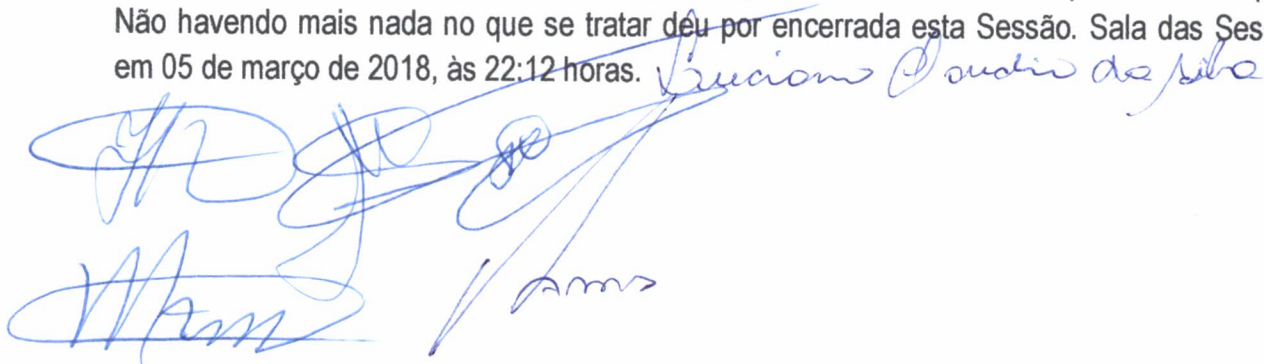 Não havendo mais nada no que se tratar deu por encerrada esta Sessão. Sala das Ses
em 05 de março de 2018, às 22:12 horas. Luciano Claudio da Silva